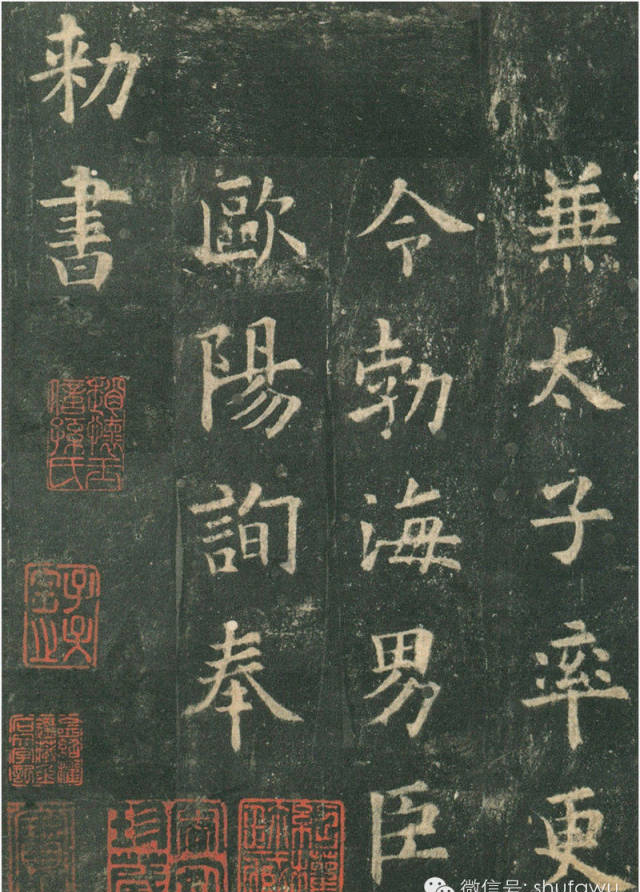 兼太子率更
令勃海男臣
歐陽詢奉
勅書
微信号: shufawu